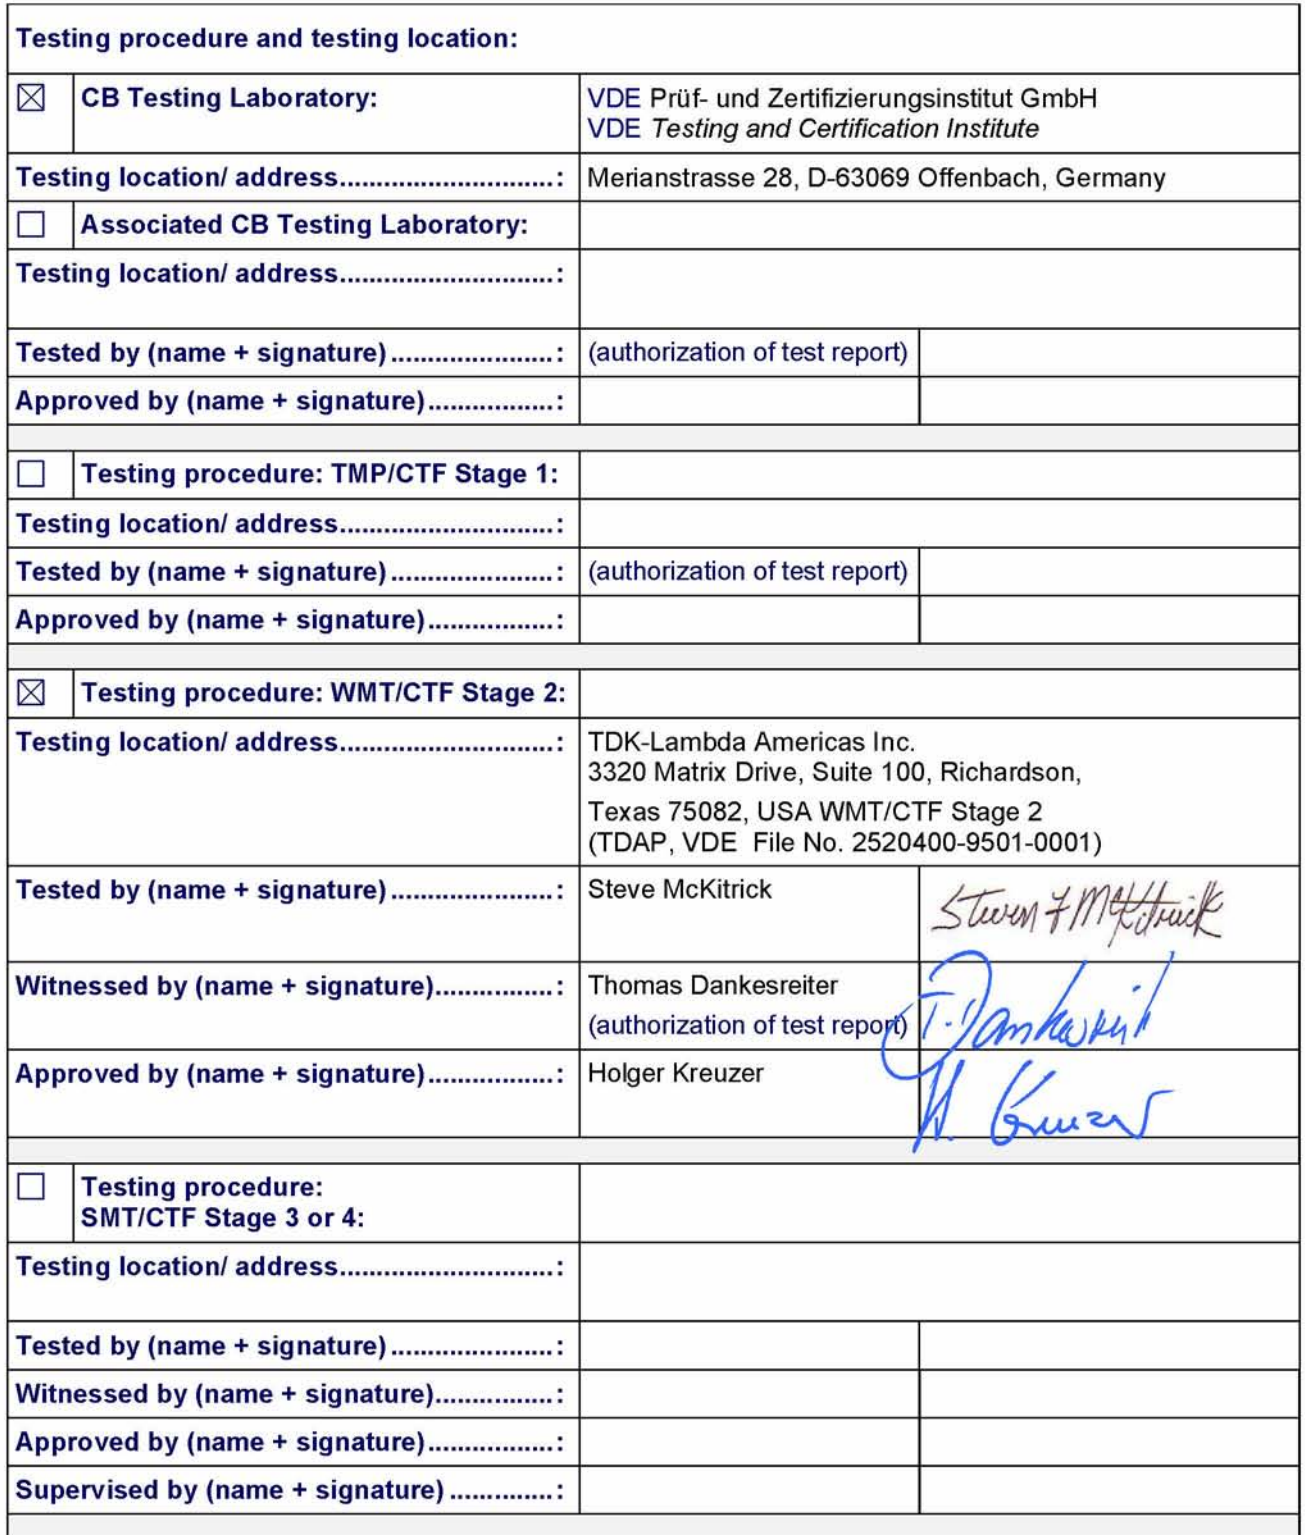 Testing procedure and testing location:
☒ CB Testing Laboratory: VDE Prüf- und Zertifizierungsinstitut GmbH
VDE Testing and Certification Institute
Testing location/ address.............................: Merianstrasse 28, D-63069 Offenbach, Germany
☐ Associated CB Testing Laboratory:
Testing location/ address.............................:
Tested by (name + signature)......................: (authorization of test report)
Approved by (name + signature).................:
☐ Testing procedure: TMP/CTF Stage 1:
Testing location/ address.............................:
Tested by (name + signature)......................: (authorization of test report)
Approved by (name + signature).................:
☒ Testing procedure: WMT/CTF Stage 2:
Testing location/ address.............................: TDK-Lambda Americas Inc.
3320 Matrix Drive, Suite 100, Richardson,
Texas 75082, USA WMT/CTF Stage 2
(TDAP, VDE File No. 2520400-9501-0001)
Tested by (name + signature)......................: Steve McKitrick Steven F McKitrick
Witnessed by (name + signature)................: Thomas Dankesreiter
(authorization of test report) T. Dankesreit
Approved by (name + signature).................: Holger Kreuzer H. Kreuzer
☐ Testing procedure:
SMT/CTF Stage 3 or 4:
Testing location/ address.............................:
Tested by (name + signature)......................:
Witnessed by (name + signature)................:
Approved by (name + signature).................:
Supervised by (name + signature)..............: